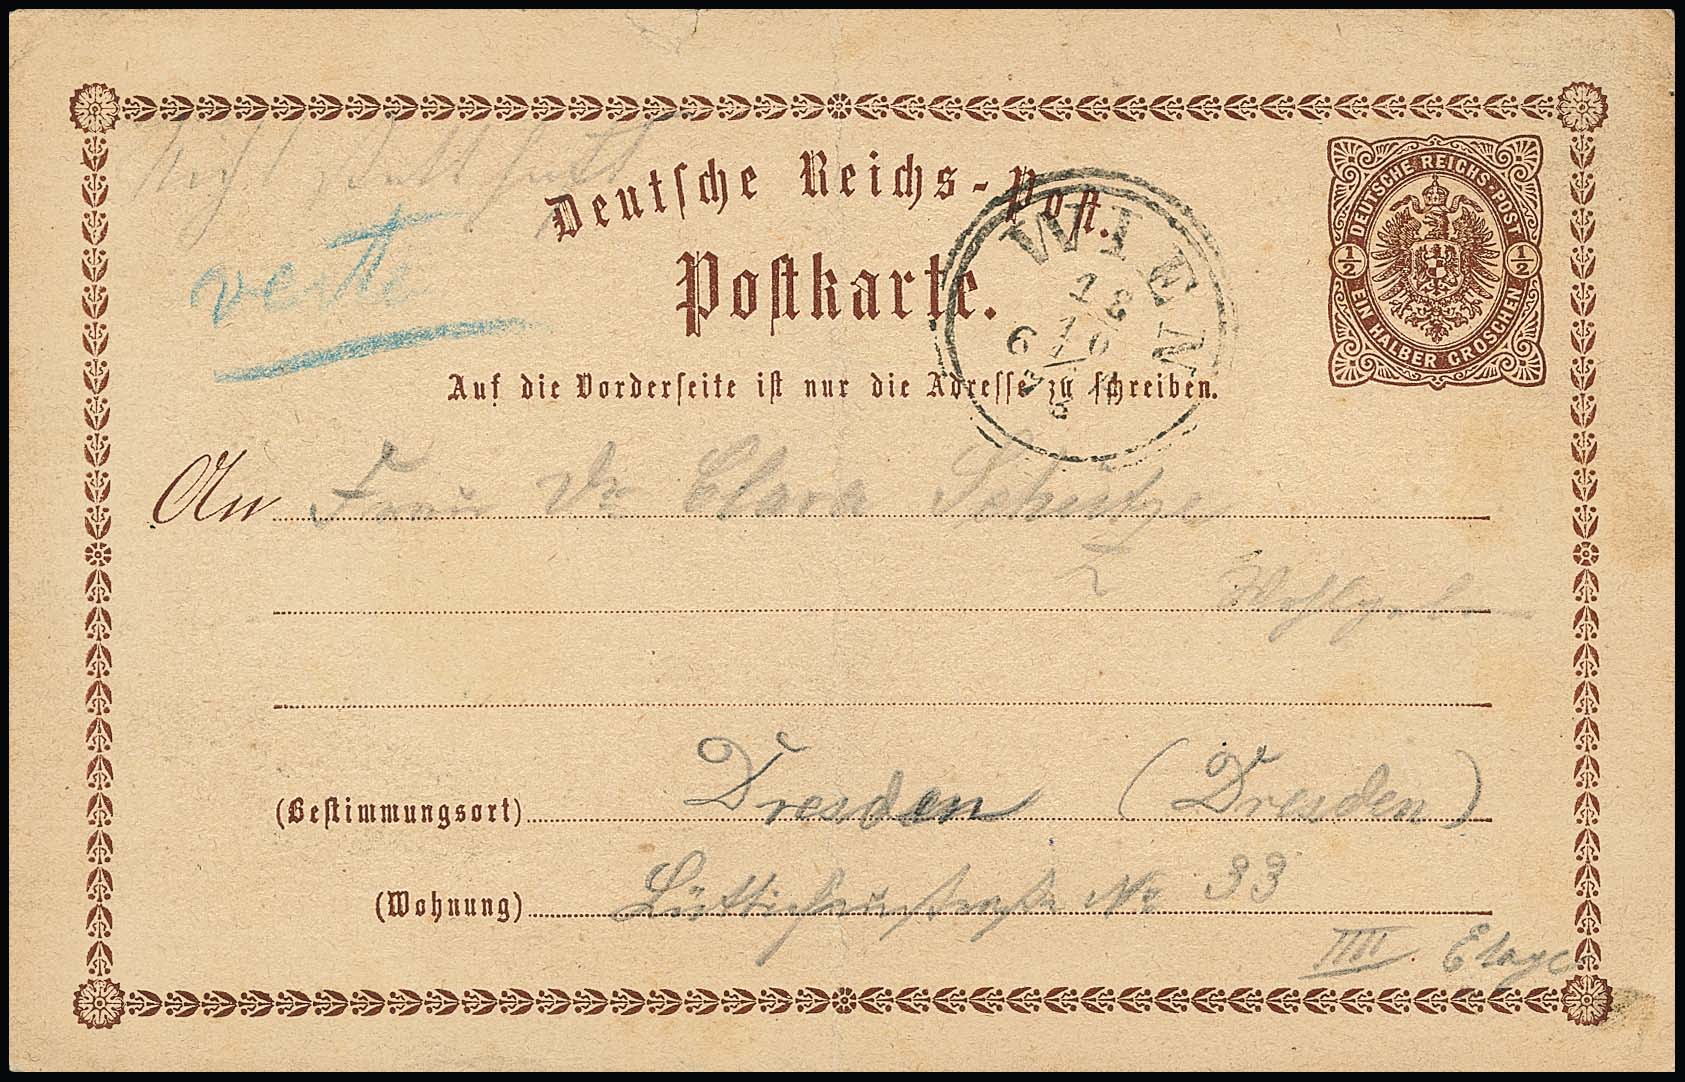 Nicht
Deutsche Reichs-Post.
verte
Postkarte.
DEUTSCHE REICHS-POST
½ ½
EIN HALBER GROSCHEN
WIEN
18
10
6
Auf die Vorderseite ist nur die Adresse zu schreiben.
An Frau Dr Clara Schütze
Wohlgeb
(Bestimmungsort) Dresden (Dresden)
(Wohnung) Lüttichaustraße No 33
IIII. Etage